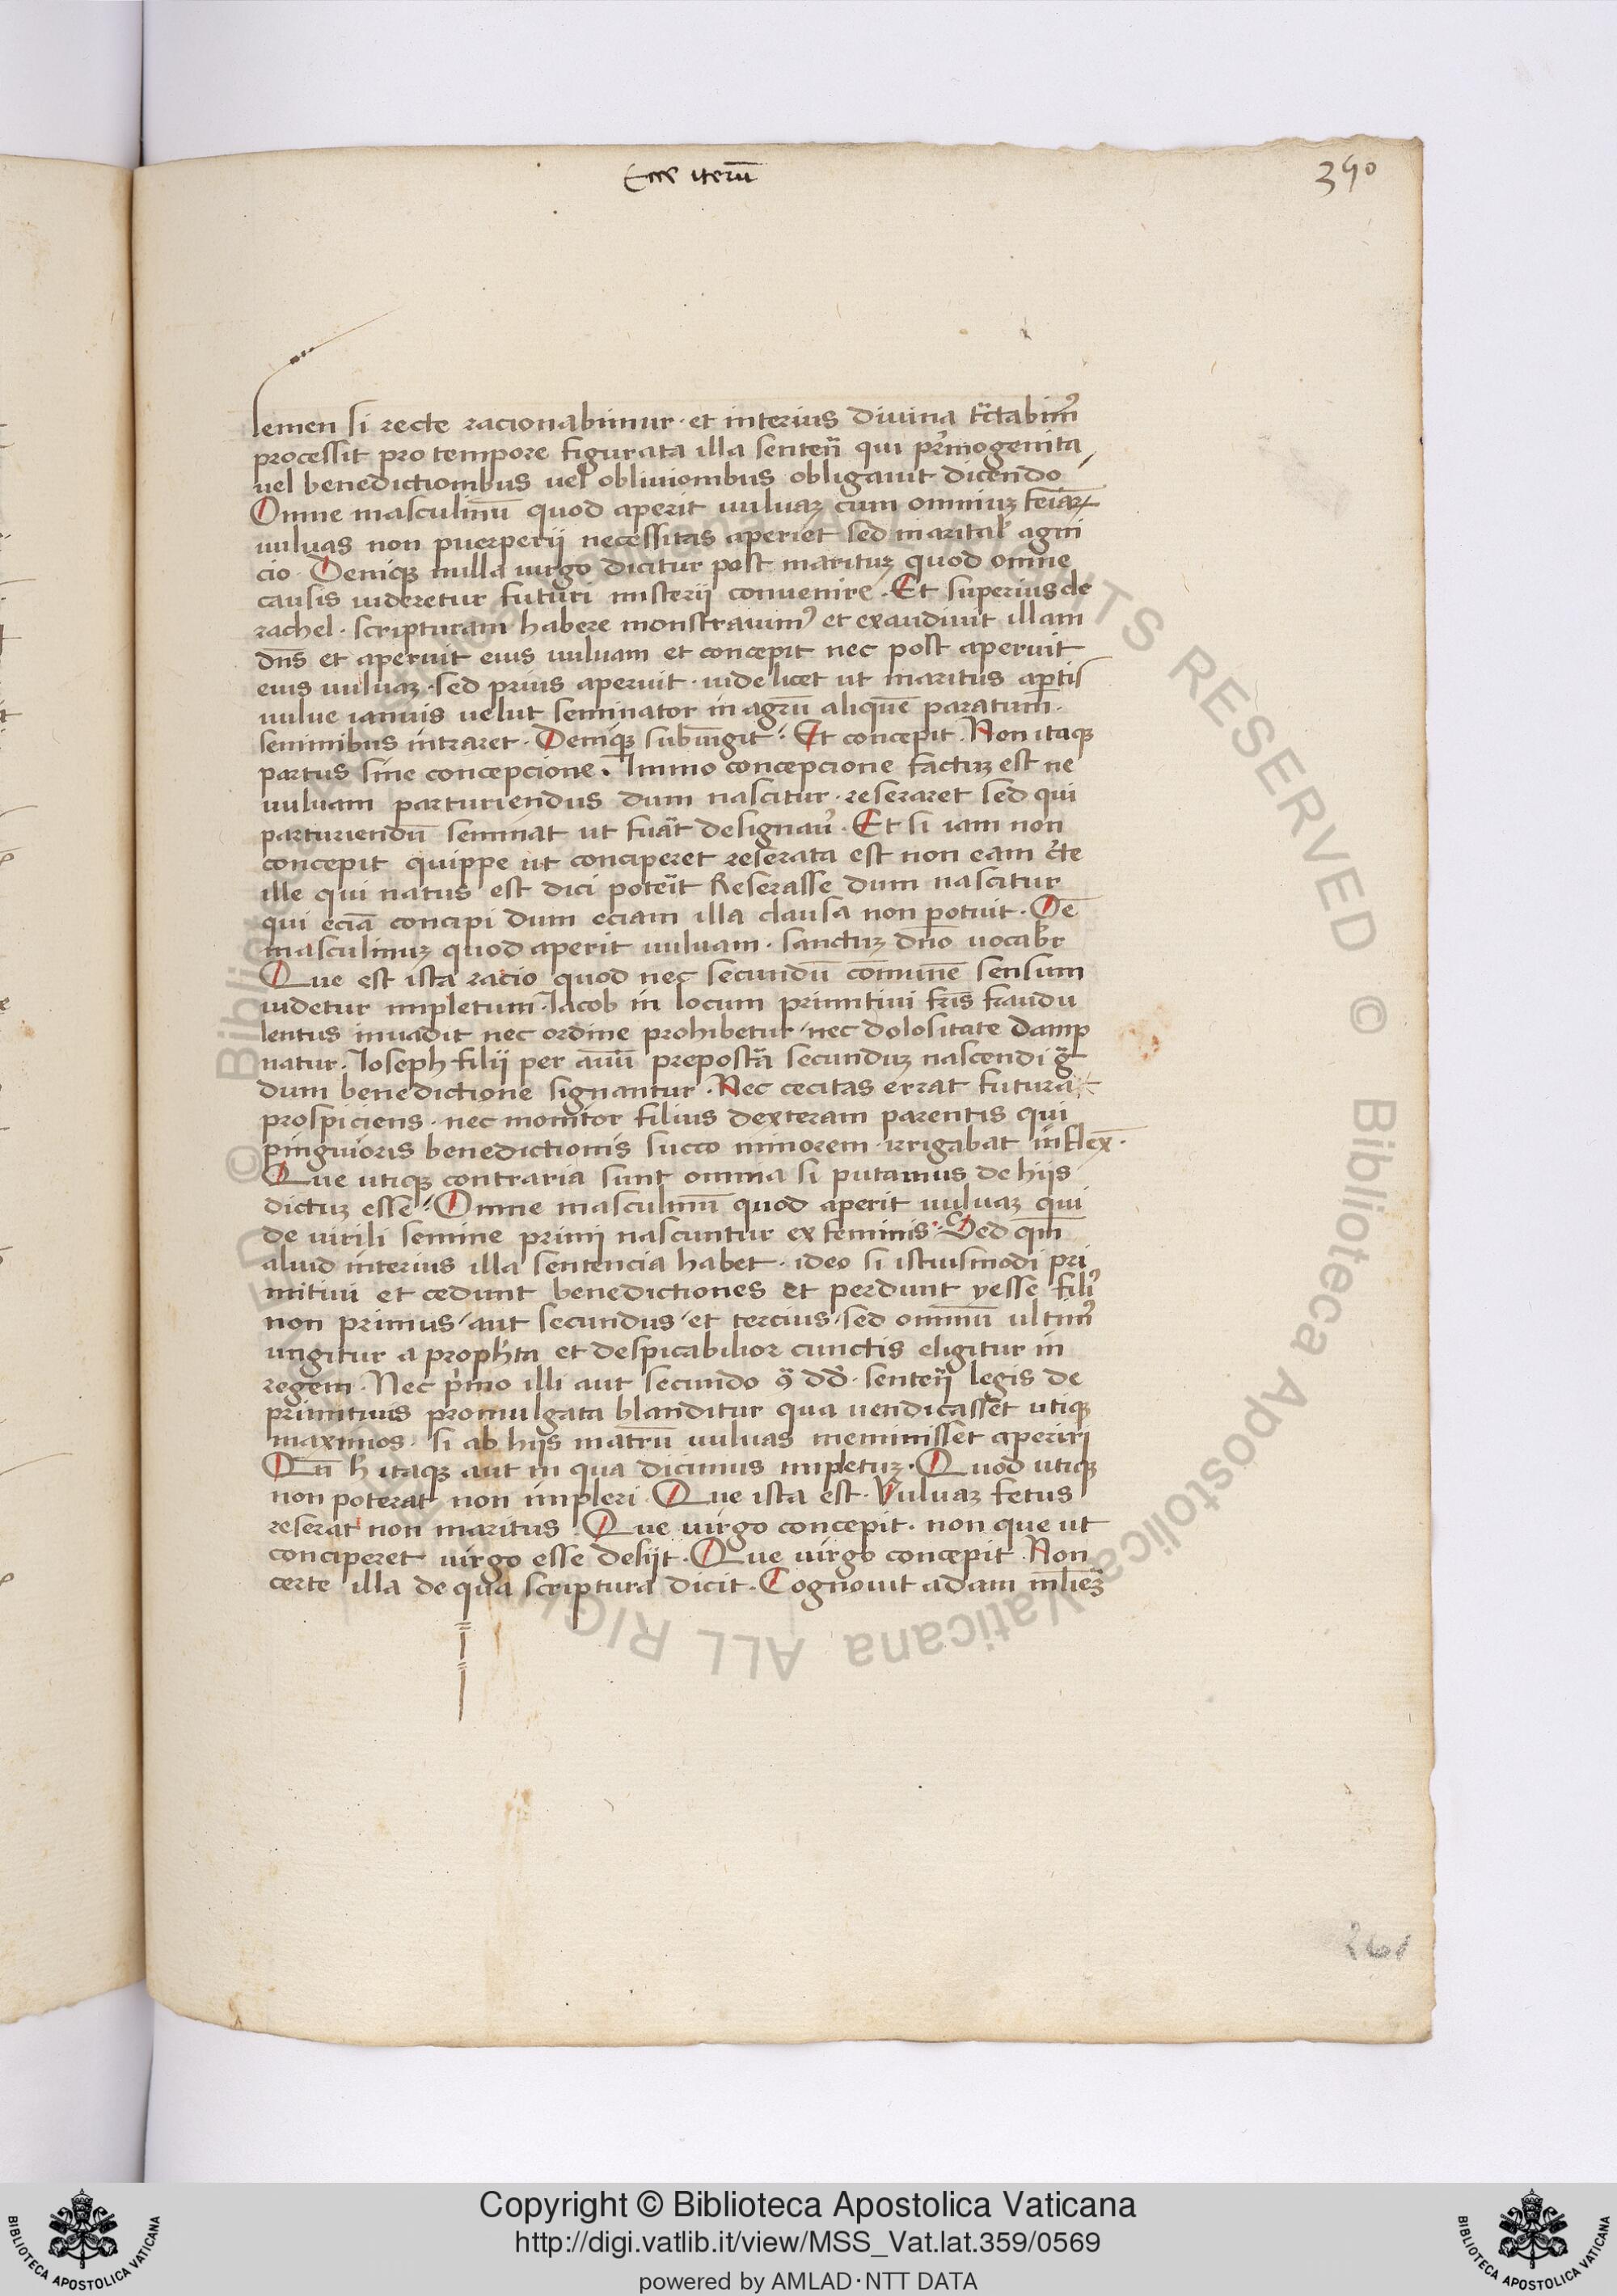 Ecce iterū
390
semen si recte racionabimur · et interius divina tͣctabimꝰ
processit pro tempore figurata illa senteñ qui prͥmogenita
uel benedictionibus uel obliuionibus obligauit dicendo
Omne masculinū quod aperit uuluaꝫ cum omniuꝫ feīaꝝ
uuluas non puerperij necessitas aperiet sed marital' agni
cio · Deniqꝫ nulla uirgo dicitur post marituꝫ quod omne
causis uideretur futuri misterij convenire · Et superius de
rachel · scripturam habere monstrauimꝰ et exaudiuit illam
dn̄s et aperuit eius uuluam et concepit nec post aperuit
eius uuluaꝫ · sed prius aperuit · uidelicet ut maritus aꝑtis
uulue ianuis uelut seminator in agrū aliquē paratum ·
seminibus intraret · Deniqꝫ subiūgit · Et concepit · Non itaqꝫ
partus sine concepcione · Immo concepcione factuꝫ est ne
uuluam parturiendus dum nascitur · reseraret sed qui
parturiendū seminat ut fuāt designau᷑ · Et si iam non
concepit quippe ut conciperet reserata est non eam c᷑te
ille qui natus est dici poteīt Reserasse dum nascitur
qui eciā concipi dum eciam illa clausa non potuit · Oē
masculinuꝫ quod aperit uuluam · sanctuꝫ dn̄o uocab᷑r
Que est ista racio quod nec secundū cōmunē sensum
uidetur impletum · Iacob in locum primitiui fr̄is fraudu
lentus inuadit nec ordine prohibetur · nec dolositate damp
natur · Ioseph filij per auū prepostͣa secunduꝫ nascendi gͣ
dum benedictione signantur · Nec cecitas errat futura
prospiciens · nec monitor filius dexteram parentis qui
pinguioris benedictionis succo minorem · irrigabat inflex̄ ·
Que utiqꝫ contraria sunt omnia si putamus de hijs
dictuꝫ esse · Omne masculinū quod aperit uuluaꝫ qui
de uirili semine primi nascuntur ex feminis · Sed qm̄
aliud interius illa sentencia habet · ideo si istiusmodi pri
mitiui et cedunt benedictiones et perdunt yesse filiꝰ
non primus · aut secundus · et tercius · sed omniū ultimꝰ
ungitur a proph̄ta et despicabilior cunctis eligitur in
regem · Nec pͥmo illi aut secundo ꝯ̄ dd̄ · senteñ legis de
primitiuis promulgata blanditur qua uendicasset utiqꝫ
maximos · si ab hijs matrū uuluas meminisset aperiri
Qn̄ h᷑ itaqꝫ aut in qua dicimus impletuꝫ · Quod utiqꝫ
non poterat non impleri · Que ista est · Vuluaꝫ fetus
reserat non maritus · Que uirgo concepit · non que ut
conciperet uirgo esse desijt · Que uirgo concepit · Non
certe illa de qua scriptura dicit · Cognouit adam ml̄ieꝫ
261
© Biblioteca Apostolica Vaticana ALL RIGHTS RESERVED © Biblioteca Apostolica Vaticana ALL RIGHTS RESERVED
Copyright © Biblioteca Apostolica Vaticana
http://digi.vatlib.it/view/MSS_Vat.lat.359/0569
powered by AMLAD·NTT DATA
BIBLIOTECA APOSTOLICA VATICANA
BIBLIOTECA APOSTOLICA VATICANA